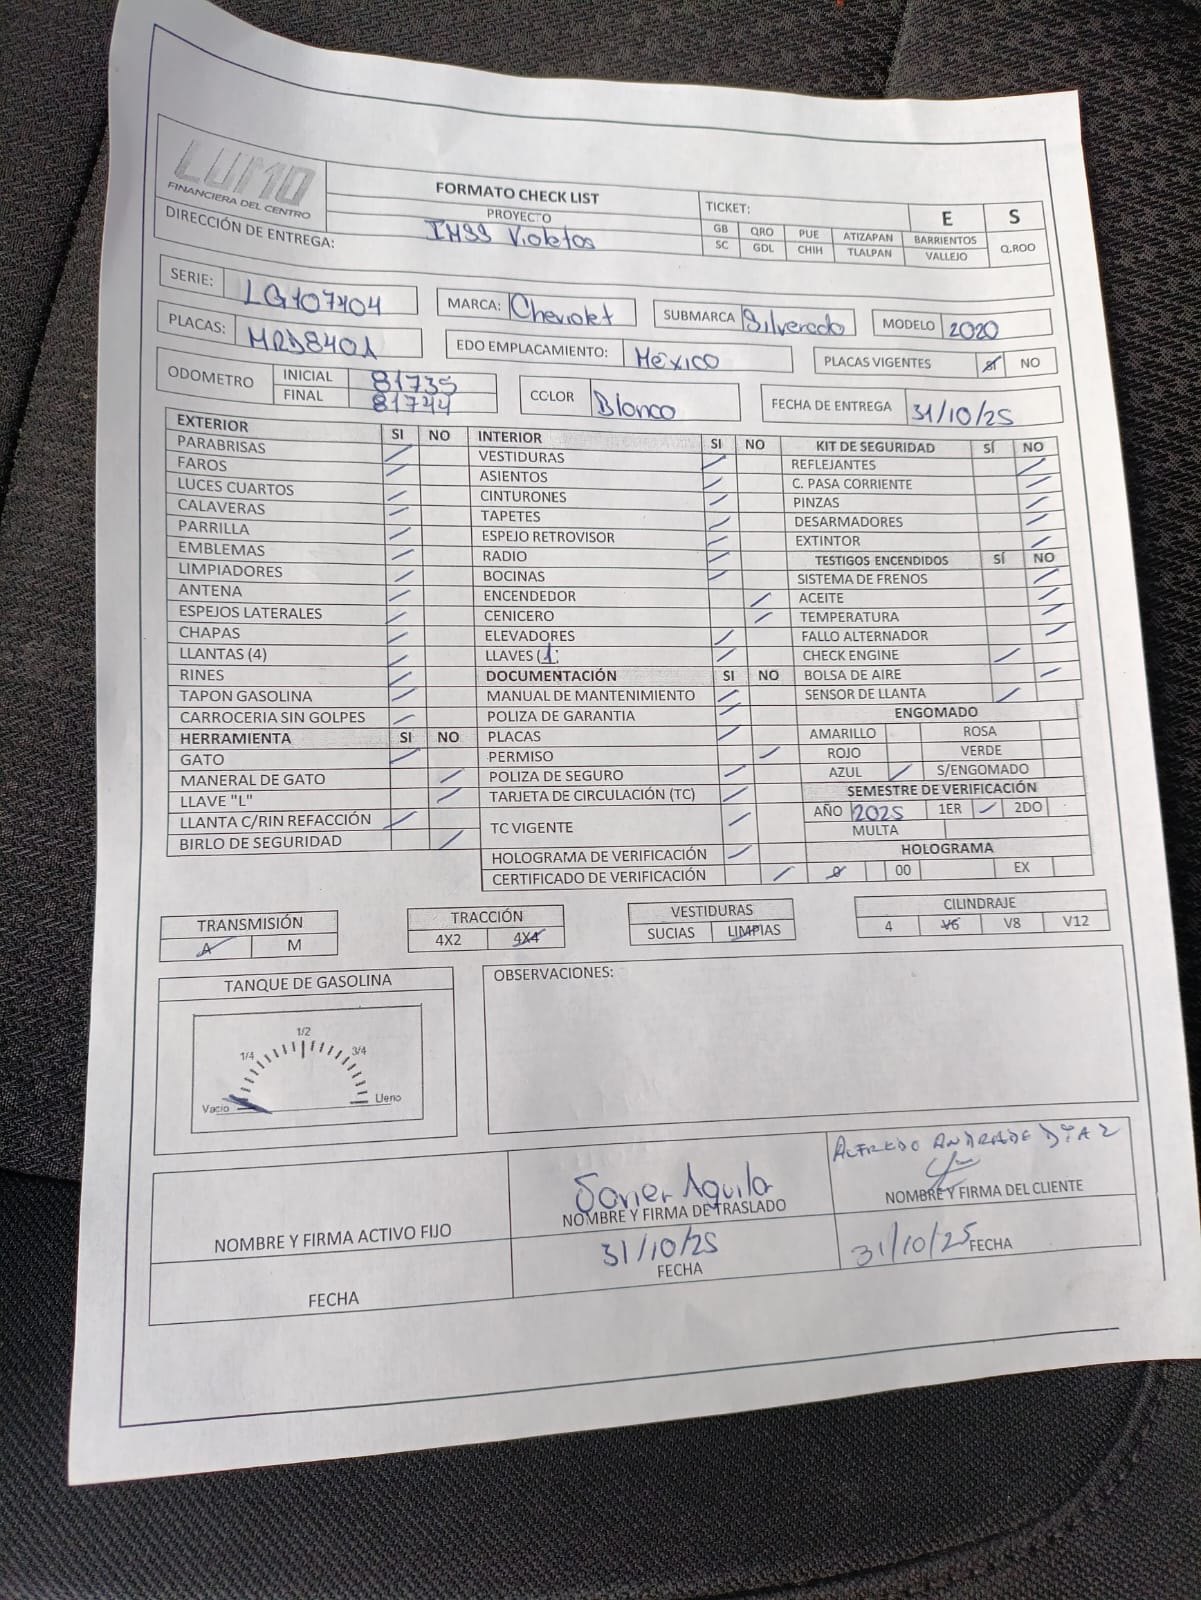 LUMO
FINANCIERA DEL CENTRO
FORMATO CHECK LIST
PROYECTO
IMSS Violetas
TICKET:
E S
GB QRO PUE ATIZAPAN BARRIENTOS Q.ROO
SC GDL CHIH TLALPAN VALLEJO
DIRECCIÓN DE ENTREGA:
SERIE: LG107404 MARCA: Chevrolet SUBMARCA Silverado MODELO 2020
PLACAS: MRD840A EDO EMPLACAMIENTO: México PLACAS VIGENTES SI NO
ODOMETRO INICIAL 81735 COLOR Blanco FECHA DE ENTREGA 31/10/25
FINAL 81744
EXTERIOR SI NO INTERIOR SI NO KIT DE SEGURIDAD SÍ NO
PARABRISAS / VESTIDURAS / REFLEJANTES /
FAROS / ASIENTOS / C. PASA CORRIENTE /
LUCES CUARTOS / CINTURONES / PINZAS /
CALAVERAS / TAPETES / DESARMADORES /
PARRILLA / ESPEJO RETROVISOR / EXTINTOR /
EMBLEMAS / RADIO / TESTIGOS ENCENDIDOS SÍ NO
LIMPIADORES / BOCINAS / SISTEMA DE FRENOS /
ANTENA / ENCENDEDOR / ACEITE /
ESPEJOS LATERALES / CENICERO / TEMPERATURA /
CHAPAS / ELEVADORES / FALLO ALTERNADOR /
LLANTAS (4) / LLAVES (1) / CHECK ENGINE /
RINES / DOCUMENTACIÓN SI NO BOLSA DE AIRE /
TAPON GASOLINA / MANUAL DE MANTENIMIENTO / SENSOR DE LLANTA /
CARROCERIA SIN GOLPES / POLIZA DE GARANTIA / ENGOMADO
HERRAMIENTA SI NO PLACAS / AMARILLO ROSA
GATO / PERMISO / ROJO VERDE
MANERAL DE GATO / POLIZA DE SEGURO / AZUL / S/ENGOMADO
LLAVE "L" / TARJETA DE CIRCULACIÓN (TC) / SEMESTRE DE VERIFICACIÓN
LLANTA C/RIN REFACCIÓN / TC VIGENTE / AÑO 2025 1ER / 2DO
BIRLO DE SEGURIDAD / MULTA
HOLOGRAMA DE VERIFICACIÓN / HOLOGRAMA
CERTIFICADO DE VERIFICACIÓN / 0 00 EX
TRANSMISIÓN TRACCIÓN VESTIDURAS CILINDRAJE
A M 4X2 4X4 SUCIAS LIMPIAS 4 V6 V8 V12
TANQUE DE GASOLINA OBSERVACIONES:
1/2
1/4 3/4
Vacio Lleno
Javier Aguilar ALFREDO ANDRADE DÍAZ
NOMBRE Y FIRMA ACTIVO FIJO NOMBRE Y FIRMA DE TRASLADO NOMBRE Y FIRMA DEL CLIENTE
31/10/25 31/10/25
FECHA FECHA FECHA